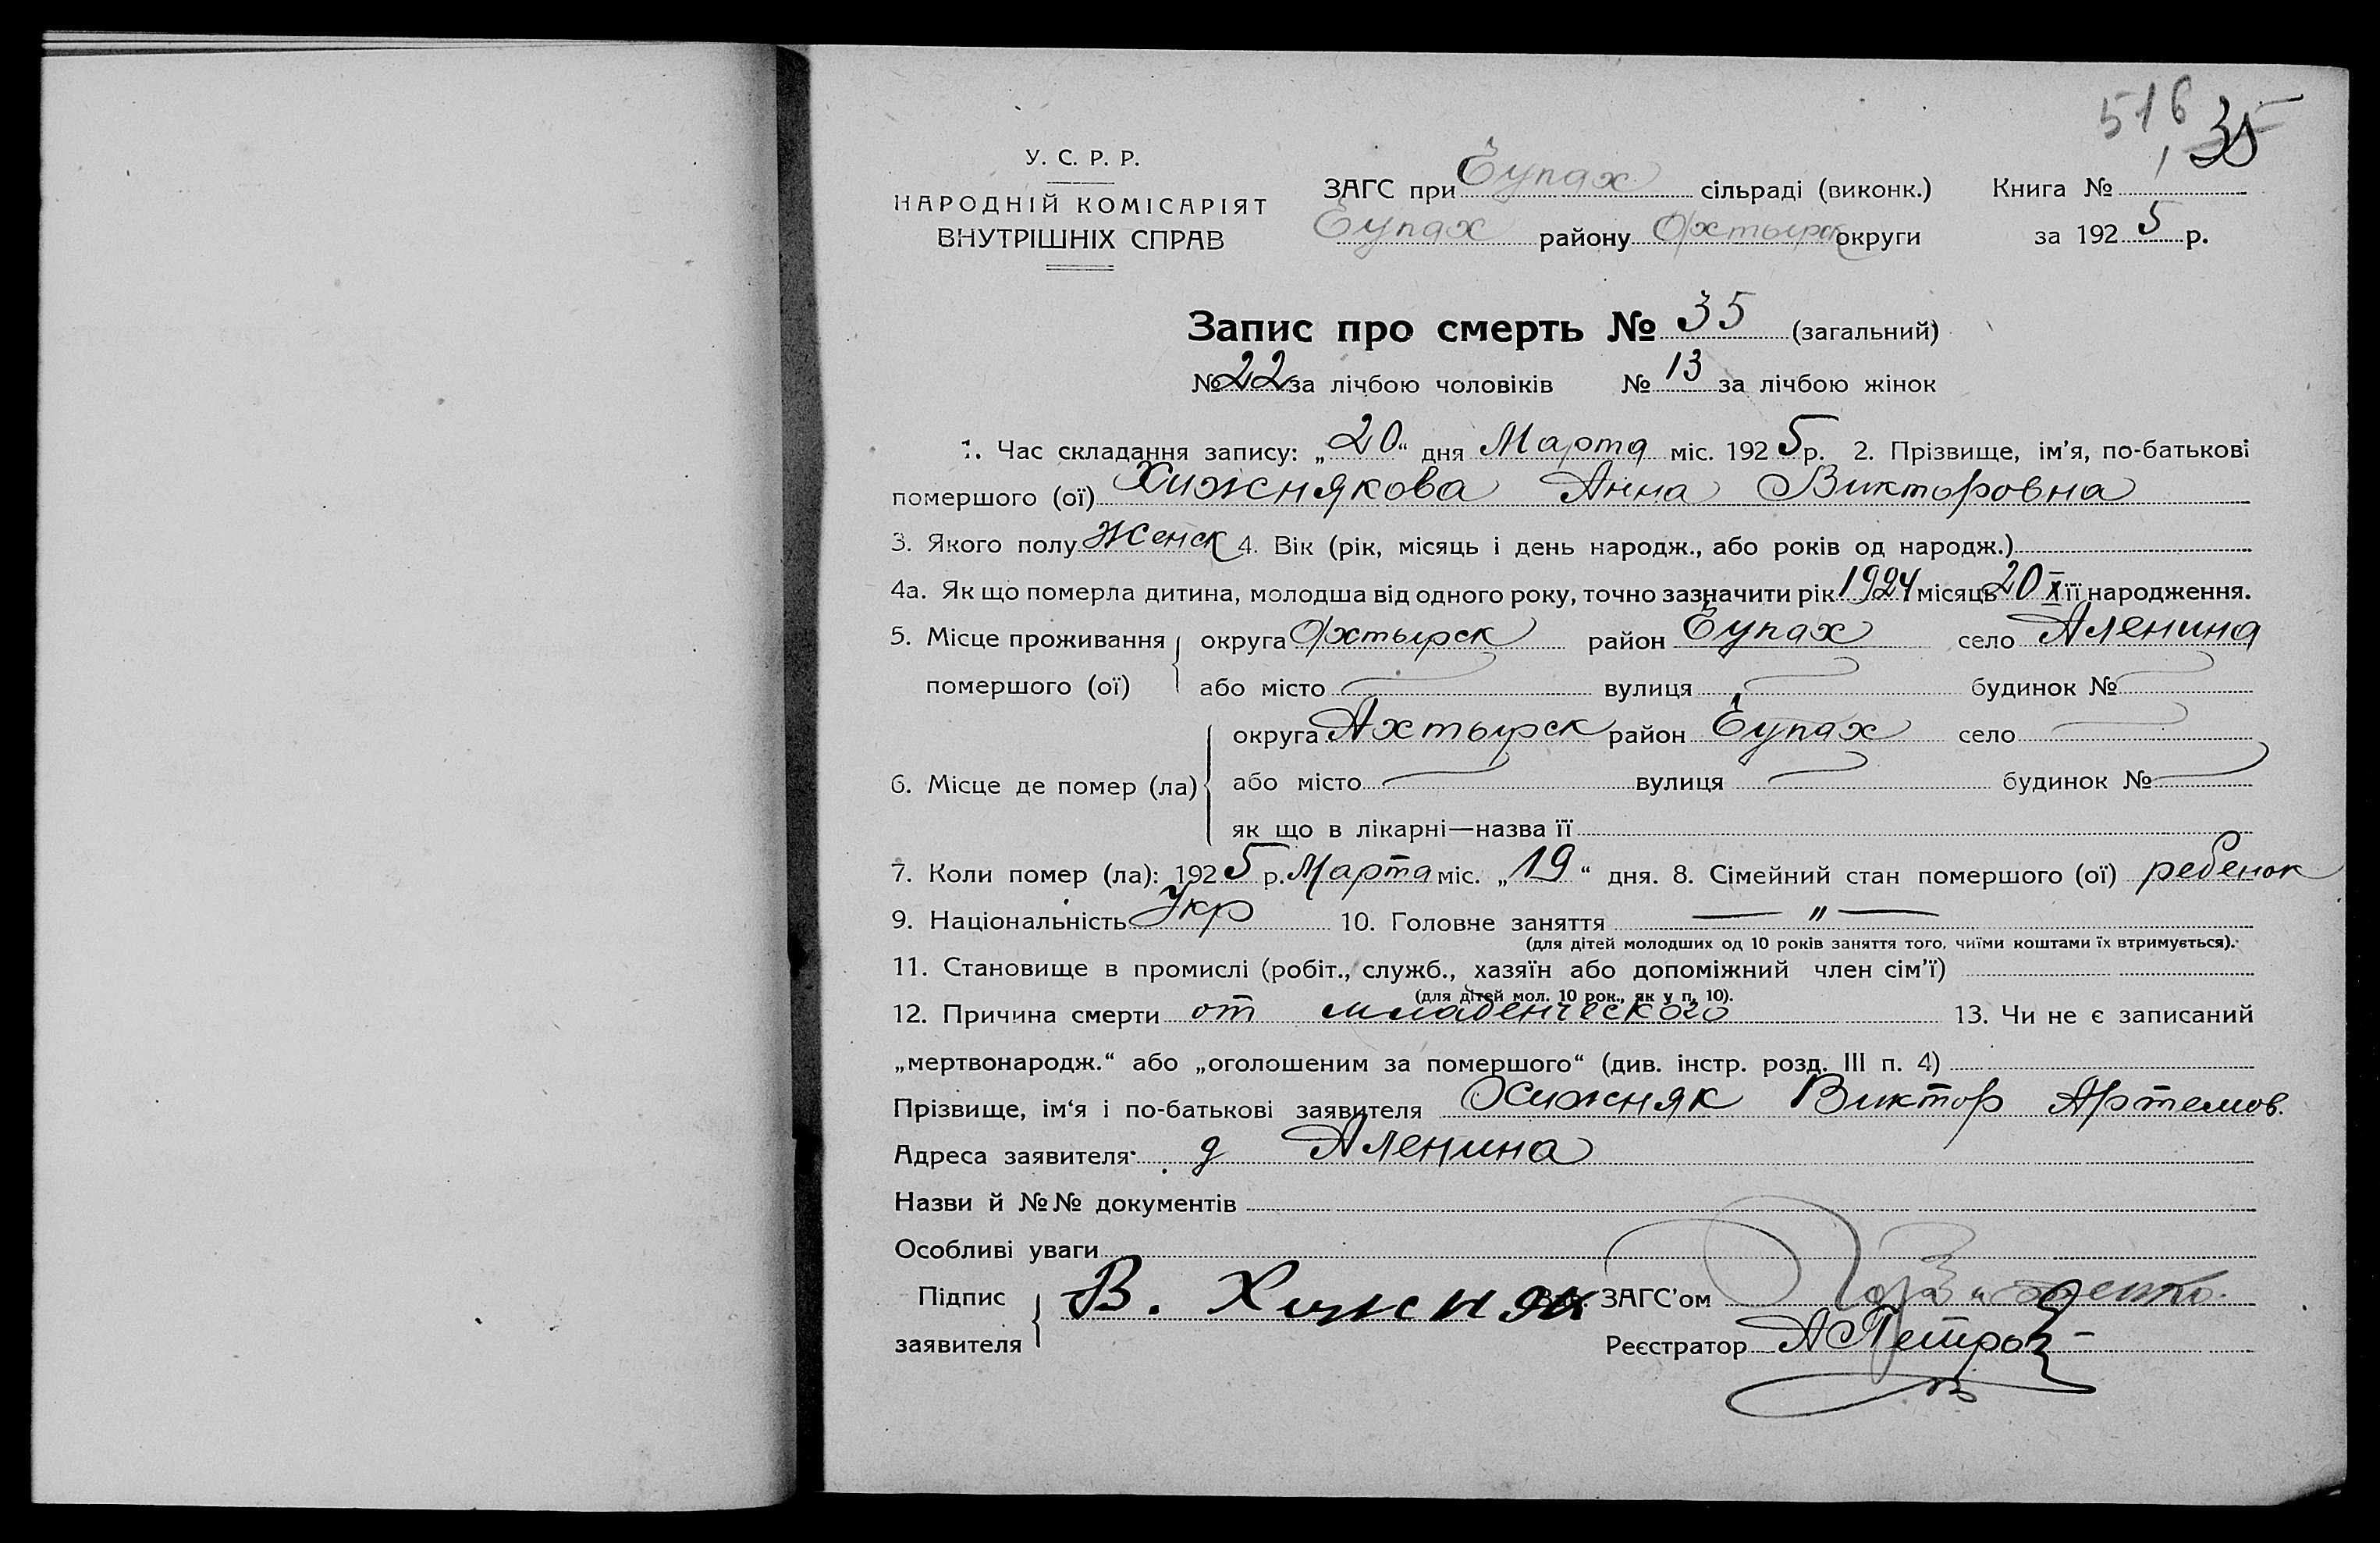 516 35
У. С. Р. Р.
НАРОДНІЙ КОМІСАРІЯТ
ВНУТРІШНІХ СПРАВ
ЗАГС при Еупах сільраді (виконк.) Книга №
Еупах району Охтырск округи за 1925 р.
Запис про смерть № 35 (загальний)
№ 22 за лічбою чоловіків № 13 за лічбою жінок
1. Час складання запису: „20“ дня Марта міс. 1925 р. 2. Прізвище, ім’я, по-батькові
помершого (ої) Хижнякова Анна Викторовна
3. Якого полу Женск 4. Вік (рік, місяць і день народж., або років од народж.)
4а. Як що померла дитина, молодша від одного року, точно зазначити рік 1924 місяць 20 X її народження.
5. Місце проживання округа Охтырск район Еупах село Аленина
помершого (ої) або місто вулиця будинок №
округа Ахтырск район Еупах село
6. Місце де помер (ла) або місто вулиця будинок №
як що в лікарні—назва її
7. Коли помер (ла): 1925 р. Марта міс. „19“ дня. 8. Сімейний стан помершого (ої) ребенок
9. Національність Укр 10. Головне заняття — " —
(для дітей молодших од 10 років заняття того, чиїми коштами їх втримується).
11. Становище в промислі (робіт., служб., хазяїн або допоміжний член сім’ї)
(для дітей мол. 10 рок., як у п. 10).
12. Причина смерти от младенческого 13. Чи не є записаний
„мертвонародж.“ або „оголошеним за помершого“ (див. інстр. розд. III п. 4)
Прізвище, ім‘я і по-батькові заявителя Хижняк Виктор Артемов.
Адреса заявителя д Аленина
Назви й №№ документів
Особливі уваги
Підпис В. Хижняк Зав. ЗАГС’ом
заявителя Реєстратор АПетров